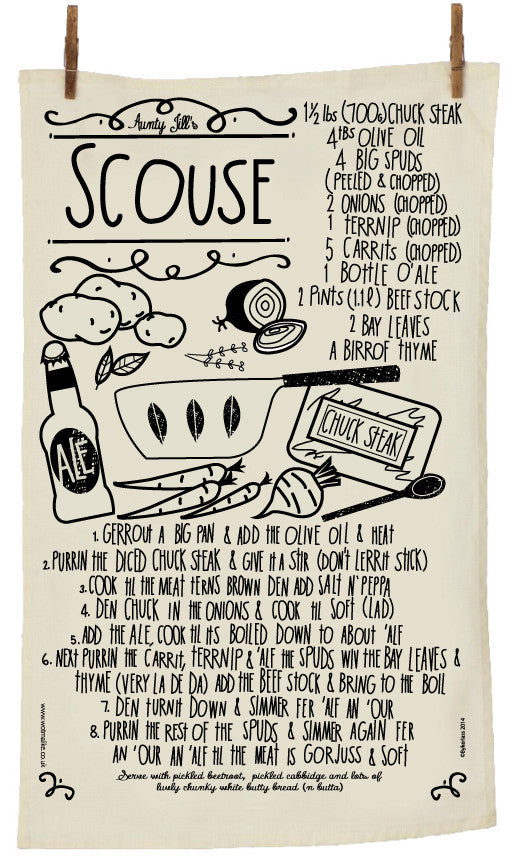 Aunty Jill's
SCOUSE
1½ lbs (700g) CHUCK STEAK
4tbs OLIVE OIL
4 BIG SPUDS
(PEELED & CHOPPED)
2 ONIONS (CHOPPED)
1 TERRNIP (CHOPPED)
5 CARRITS (CHOPPED)
1 BOTTLE O'ALE
2 PINTS (1.1 l) BEEF STOCK
2 BAY LEAVES
A BIRROF THYME
ALE
CHUCK STEAK
1. GERROUT A BIG PAN & ADD THE OLIVE OIL & HEAT
2. PURRIN THE DICED CHUCK STEAK & GIVE IT A STIR (DON'T LERRIT STICK)
3. COOK TIL THE MEAT TERNS BROWN DEN ADD SALT N' PEPPA
4. DEN CHUCK IN THE ONIONS & COOK TIL SOFT (LAD)
5. ADD THE ALE, COOK TIL ITS BOILED DOWN TO ABOUT 'ALF
6. NEXT PURRIN THE CARRIT, TERRNIP & 'ALF THE SPUDS WIN THE BAY LEAVES &
THYME (VERY LA DE DA) ADD THE BEEF STOCK & BRING TO THE BOIL
7. DEN TURNIT DOWN & SIMMER FER 'ALF AN 'OUR
8. PURRIN THE REST OF THE SPUDS & SIMMER AGAIN FER
AN 'OUR AN 'ALF TIL THE MEAT IS GORJUSS & SOFT
Serve with pickled beetroot, pickled cabbidge and lots of
lively chunky white butty bread (n butta)
www.wotmalike.co.uk
©Bykerlass 2014